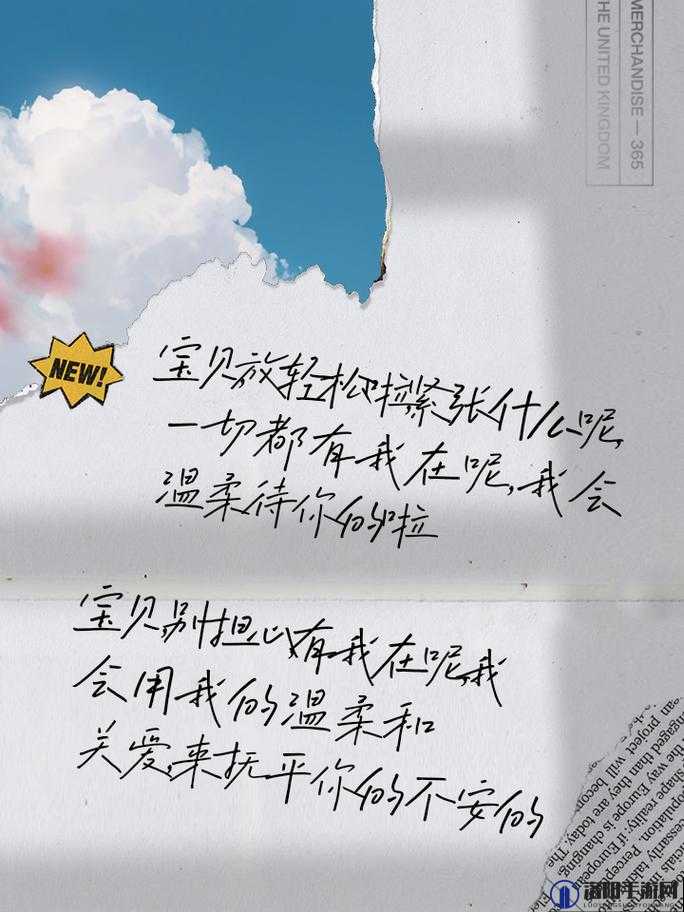 MERCHANDISE — 365
THE UNITED KINGDOM
NEW!
宝贝放轻松啦,紧张什么呢,
一切都有我在呢,我会
温柔待你的啦
宝贝,别担心,有我在呢,我
会用我的温柔和
关爱,来抚平你的不安的
project will
the way Europe is changing
than they are today. The
shape reality: if European
洛阳手游网